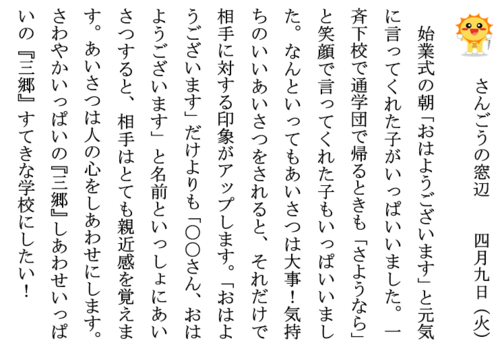 さんごうの窓辺　　四月九日（火）
　始業式の朝「おはようございます」と元気
に言ってくれた子がいっぱいいました。一
斉下校で通学団で帰るときも「さようなら」
と笑顔で言ってくれた子もいっぱいいまし
た。なんといってもあいさつは大事！気持
ちのいいあいさつをされると、それだけで
相手に対する印象がアップします。「おはよ
うございます」だけよりも「〇〇さん、おは
ようございます」と名前といっしょにあい
さつすると、相手はとても親近感を覚えま
す。あいさつは人の心をしあわせにします。
さわやかいっぱいの『三郷』しあわせいっぱ
いの『三郷』すてきな学校にしたい！